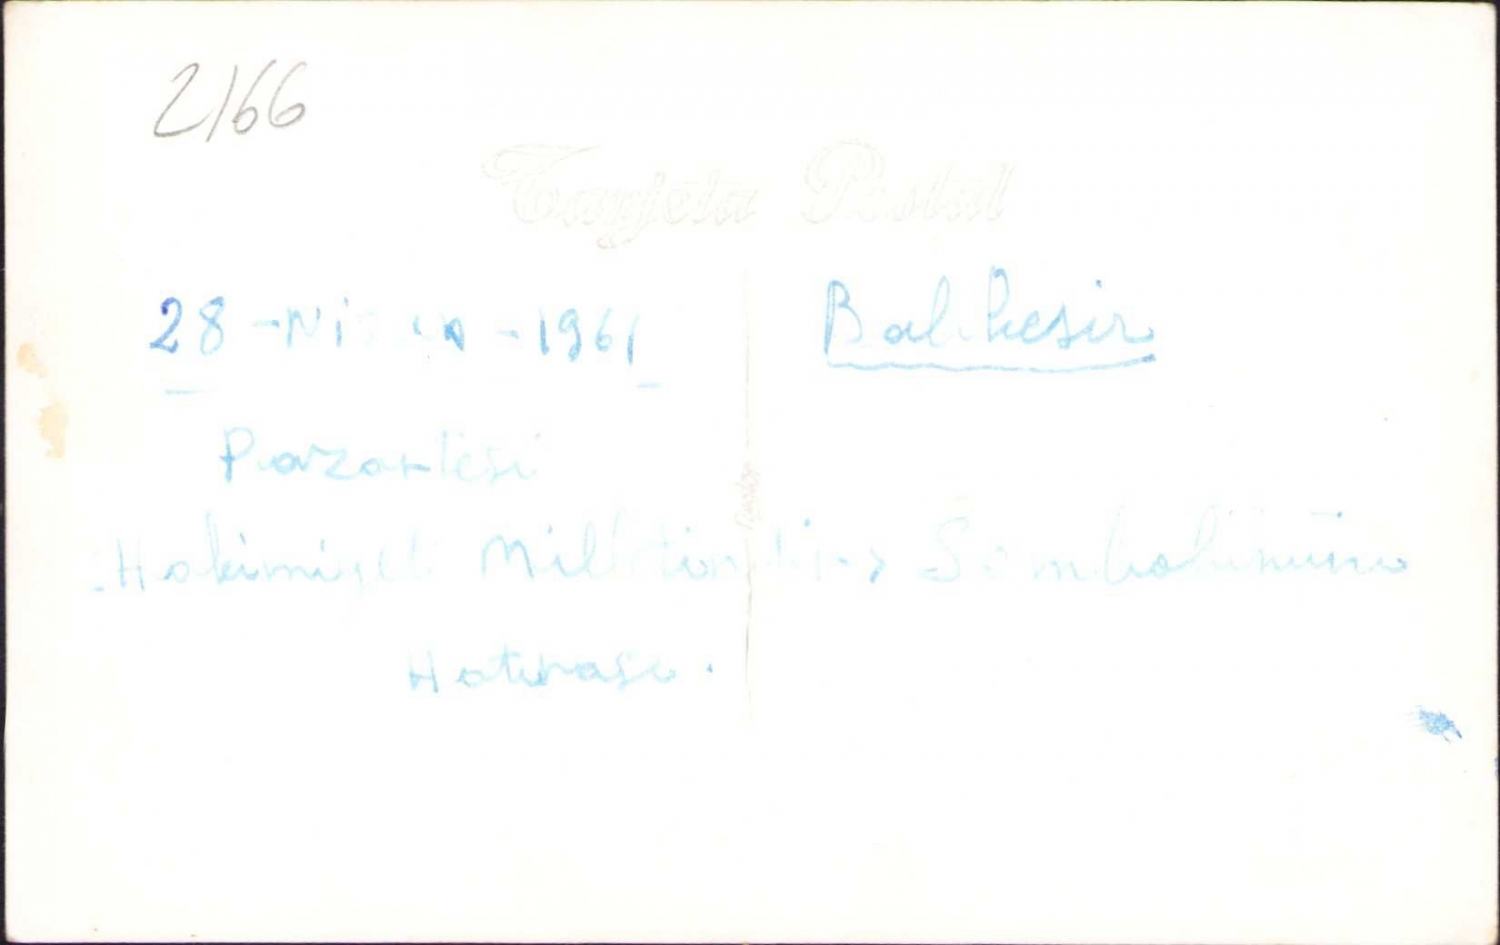 2166
Tarjeta Postal
28 - Nisan - 1961 Balıkesir
Pazartesi
Hakimiyet Milletindir, Sembolünün
Hatırası.